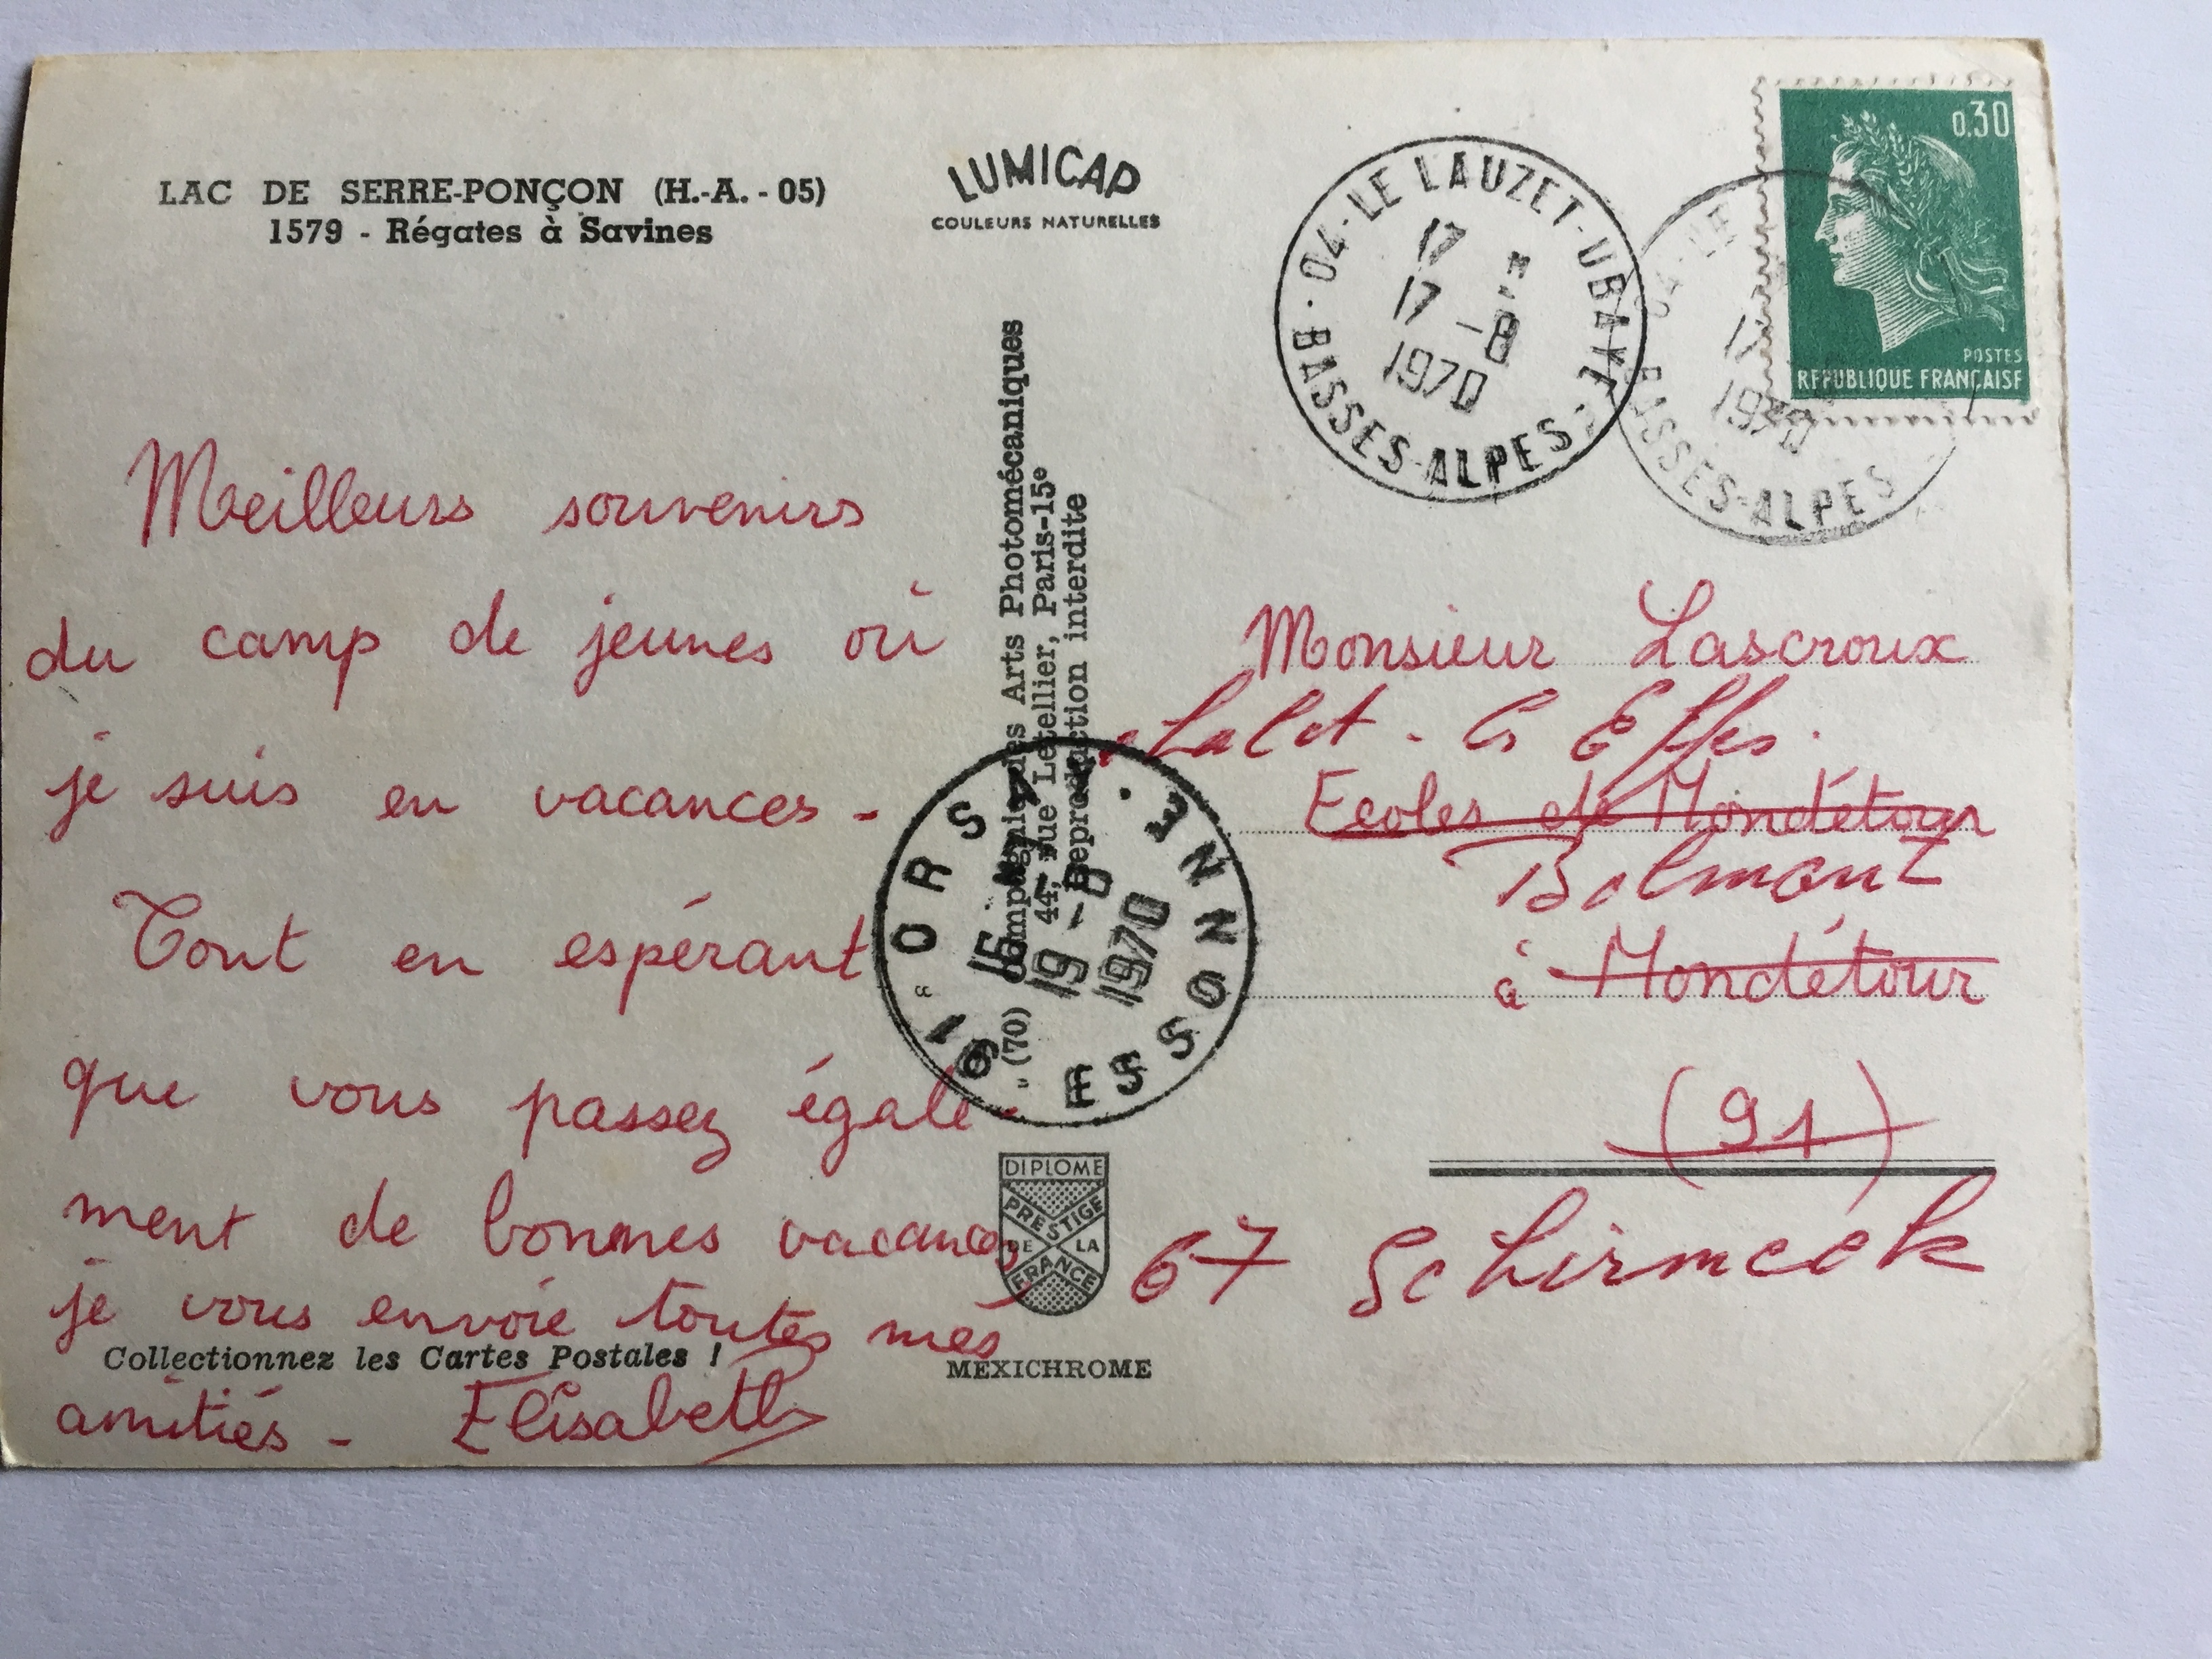 LAC DE SERRE-PONÇON (H.-A. - 05)
1579 - Régates à Savines
LUMICAP
COULEURS NATURELLES
04-LE LAUZET-UBAYE
17 H
17 -8
1970
BASSES-ALPES
04-LE
17
1970
BASSES-ALPES
0.30
POSTES
REPUBLIQUE FRANÇAISE
Meilleurs souvenirs
du camp de jeunes où
je suis en vacances -
Tout en espérant
que vous passez égale-
ment de bonnes vacances,
je vous envoie toutes mes
amitiés - Elisabeth
Collectionnez les Cartes Postales !
(70) Compagnie des Arts Photomécaniques
44, rue Letellier, Paris-15e
Reproduction interdite
91 ORSAY
15
19 -8
1970
ESSONNE
DIPLOME
PRESTIGE
DE LA
FRANCE
MEXICHROME
Monsieur Lascroux
Ecoles de Mondétour
Belmont
à Mondétour
(91)
67 Schirmeck